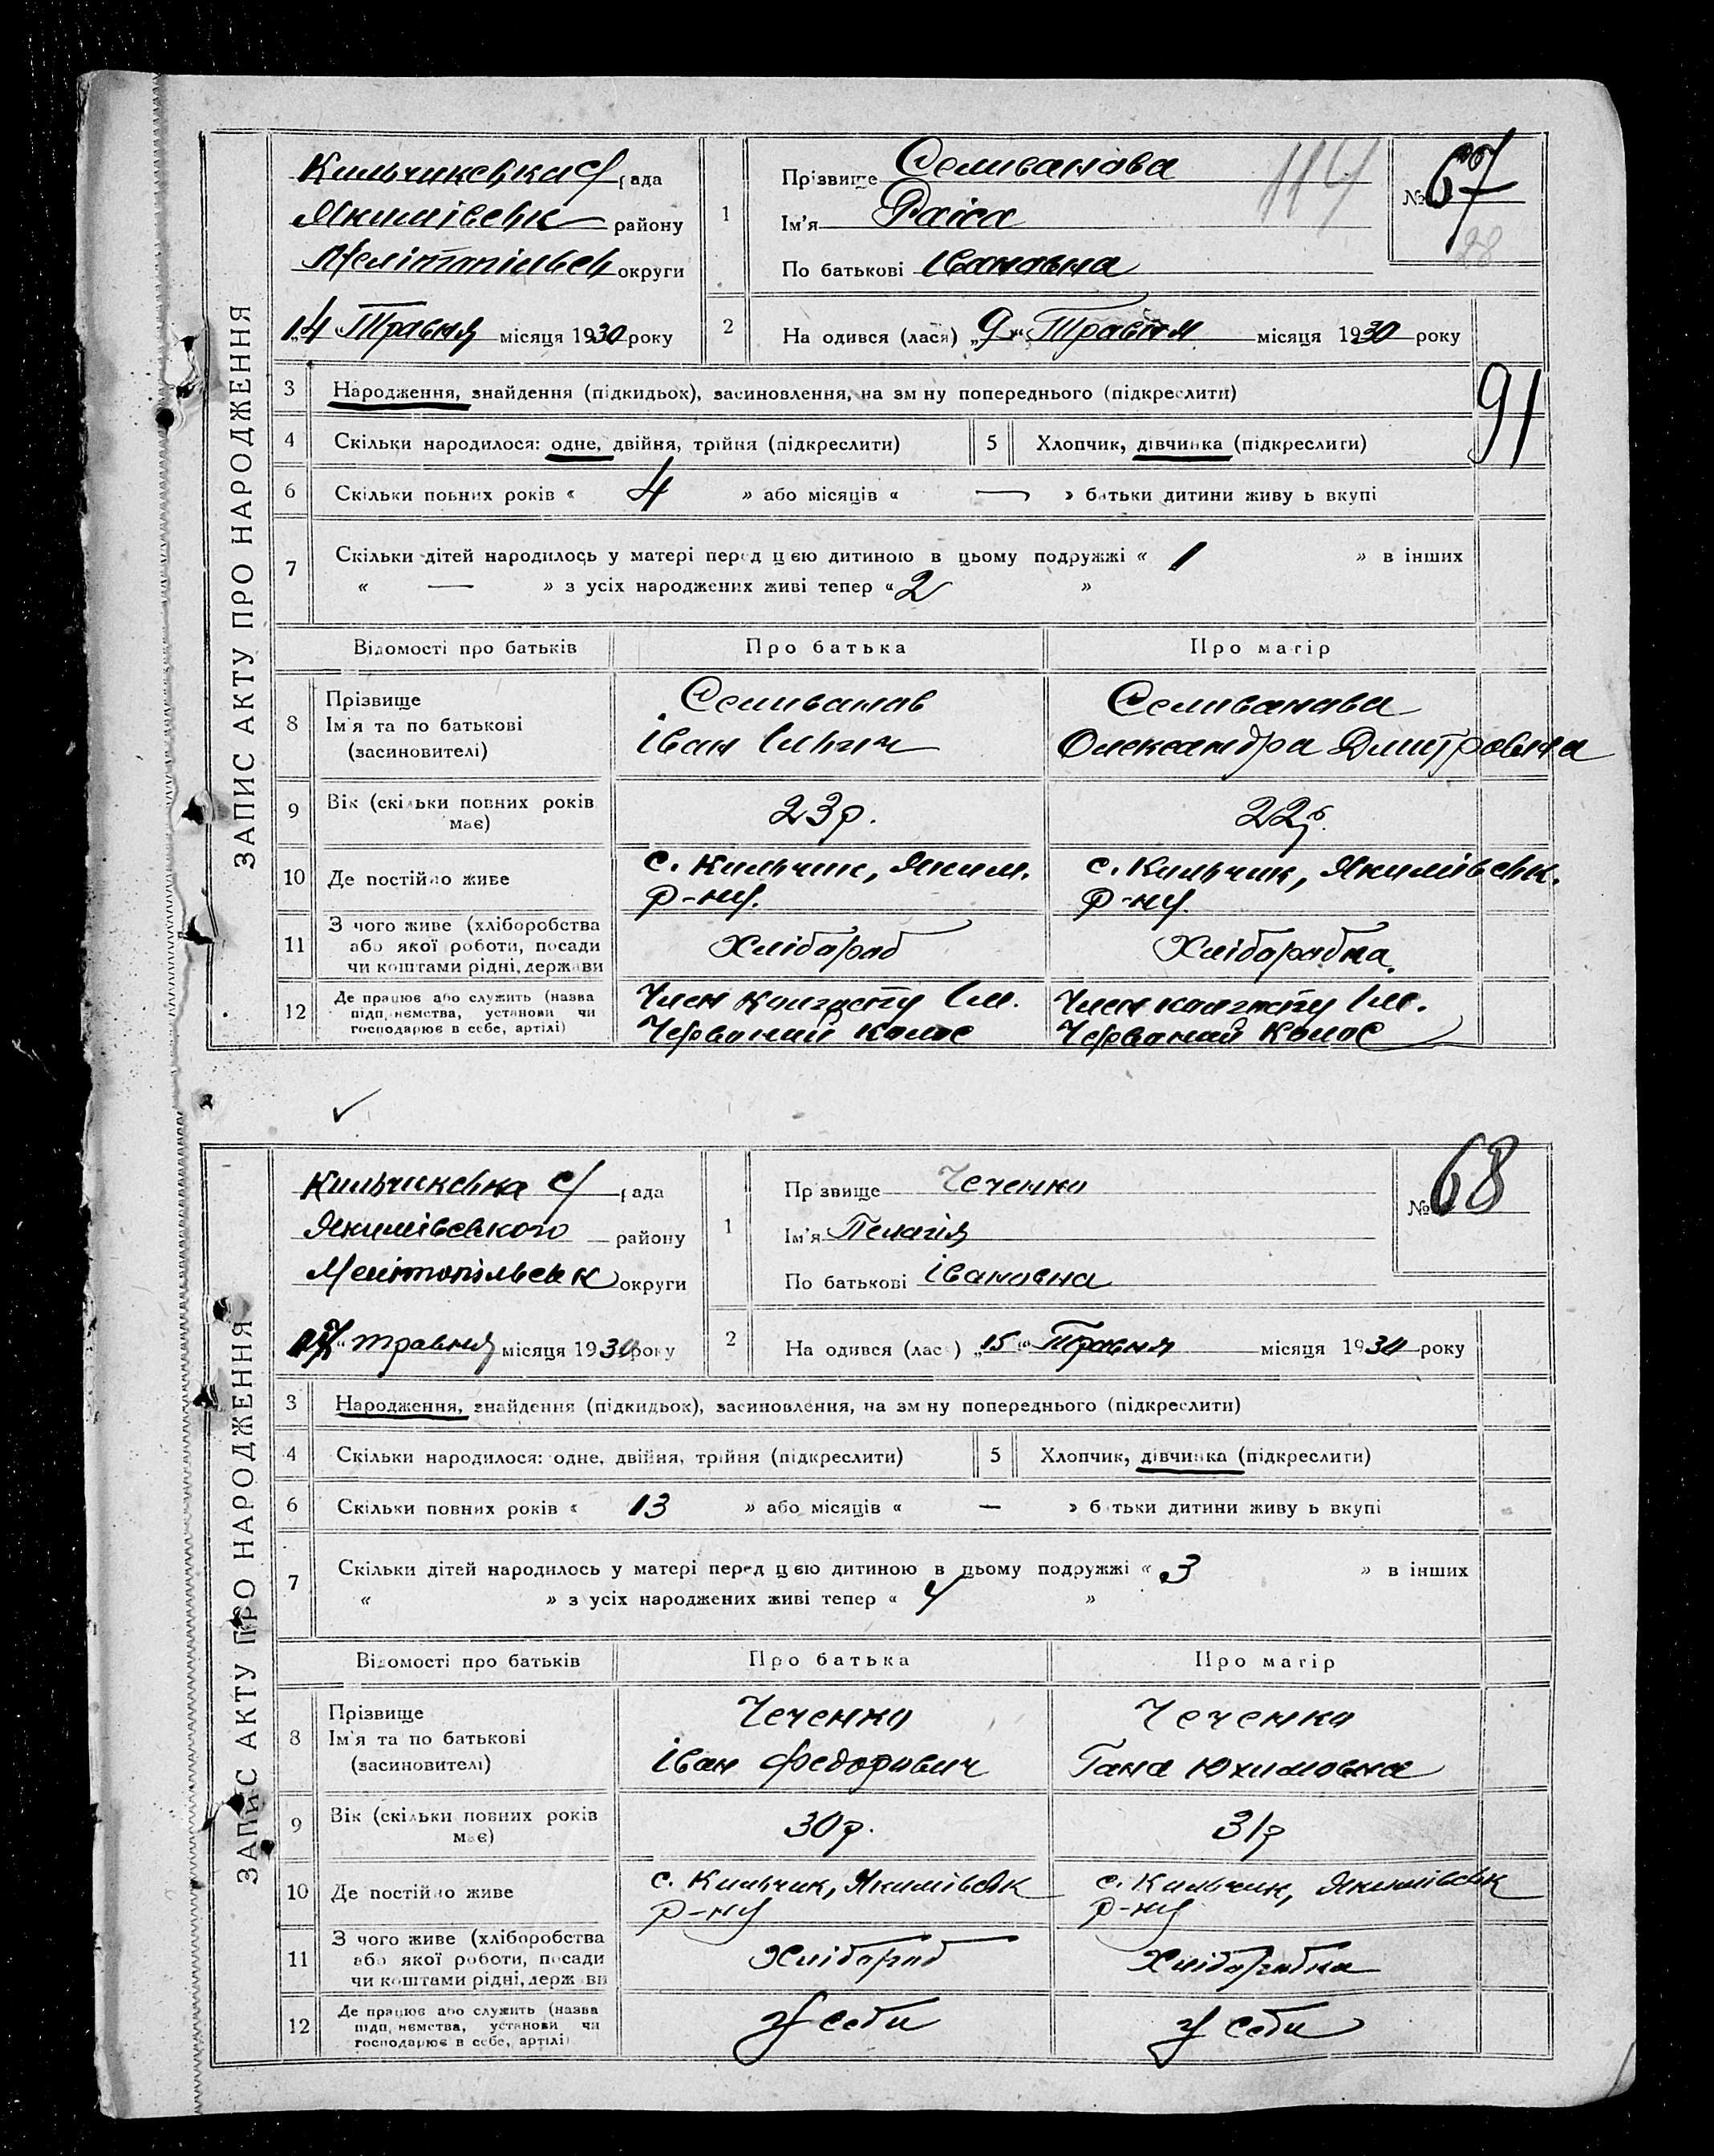 ЗАПИС АКТУ ПРО НАРОДЖЕННЯ
Кильчикська с/рада
Якимівськ району
Мелітопільськ округи
14 Травня місяця 1930 року
1
Прізвище Селиванова
Ім'я Раіса
По батькові Івановна
114
№ 67
28
2
На одився (лася) „9“ Травня місяця 1930 року
3 Народження, знайдення (підкидьок), засиновлення, на зм ну попереднього (підкреслити)
91
4 Скільки народилося: одне, двійня, трійня (підкреслити) 5 Хлопчик, дівчинка (підкреслити)
6 Скільки повних років « 4 » або місяців « — » батьки дитини живу ь вкупі
7 Скільки дітей народилось у матері перед цією дитиною в цьому подружжі « 1 » в інших
« — » з усіх народжених живі тепер « 2 »
Відомості про батьків Про батька Про матір
8 Прізвище Ім'я та по батькові (засиновителі)
Селиванов Селиванова
Іван Ілььич Олександра Дмитровна
9 Вік (скільки повних років має) 23 р. 22 р.
10 Де постійно живе
с. Кильчик, Яким. с. Кильчик, Якимівськ.
р-ну. р-ну.
11 З чого живе (хліборобства або якої роботи, посади чи коштами рідні, держави
Хлібороб Хліборобка.
12 Де працює або служить (назва підп, немства, установи чи господарює в себе, артілі)
Член колгоспу Ім. Член колгоспу Ім.
Червоний колос Червоний Колос
ЗАПИС АКТУ ПРО НАРОДЖЕННЯ
Кильчикська с/рада
Якимівського району
Мелітопільськ округи
17 травня місяця 1930 року
1
Пр звище Чеченко
Ім'я Пелагія
По батькові Івановна
№ 68
2
На одився (лас ) „15“ Травня місяця 1930 року
3 Народження, знайдення (підкидьок), засиновлення, на зм ну попереднього (підкреслити)
4 Скільки народилося: одне, двійня, трійня (підкреслити) 5 Хлопчик, дівчинка (підкреслити)
6 Скільки повних років « 13 » або місяців « — » б тьки дитини живу ь вкупі
7 Скільки дітей народилось у матері перед цією дитиною в цьому подружжі « 3 » в інших
« » з усіх народжених живі тепер « 4 »
Відомості про батьків Про батька Про матір
8 Прізвище Ім'я та по батькові (засиновителі)
Чеченко Чеченко
Іван Федорович Гана Юхимовна
9 Вік (скільки повних років має) 30 р. 31 р
10 Де постійно живе
с. Кильчик, Якимівськ с. Кильчик, Якимівськ
р-ну р-ну
11 З чого живе (хліборобства або якої роботи, посади чи коштами рідні, держ ви
Хлібороб Хліборобка
12 Де працює або служить (назва підп, немства, установи чи господарює в себе, артілі)
у себи у себи